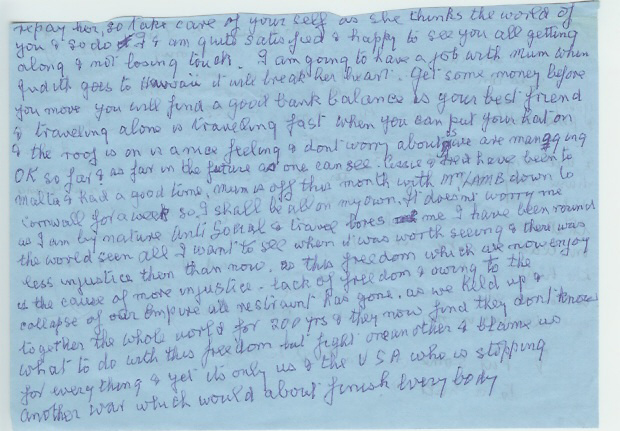 repay her, so take care of your self as she thinks the world of
you & so do I & I am quite satisfied & happy to see you all getting
along & not losing touch. I am going to have a job with Mum when
Judith goes to Hawaii it will break her heart. Get some money before
you move you will find a good bank balance is your best friend
& traveling alone is traveling fast when you can put your hat on
& the roof is on is a nice feeling & dont worry about us we are managing
OK so far & as far in the future as one can see. & have been to
Malta & had a good time, mum is off this month with Mrs LAMB down to
Cornwall for a week so I shall be all on my own. It doesnt worry me
as I am by nature Anti Social & travel bores me I have been round
the world seen all I want to see when it was worth seeing & there was
less injustice then than now. as this freedom which are now enjoy
is the cause of more injustice. lack of freedom & owing to the
collapse of our Empire all restraint has gone. as we held up &
together the whole world for 200 yrs & they now find they dont know
what to do with this freedom but fight oneanother & blame us
for every thing & yet its only us & the USA who is stopping
another war which would about finish every body